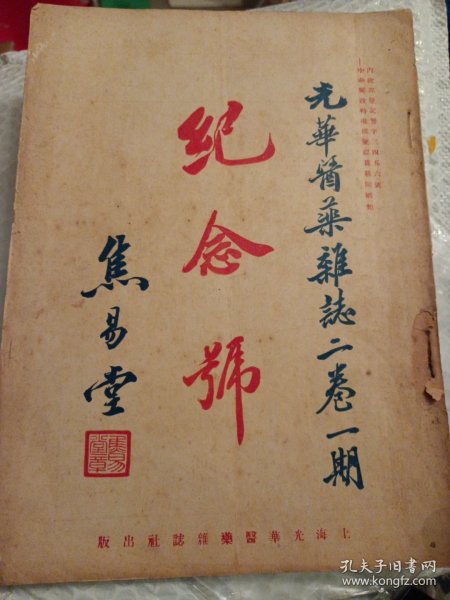 光華醫藥雜誌二卷一期
紀念號
焦易堂
焦易堂章
上海光華醫藥雜誌社出版
孔夫子旧书网